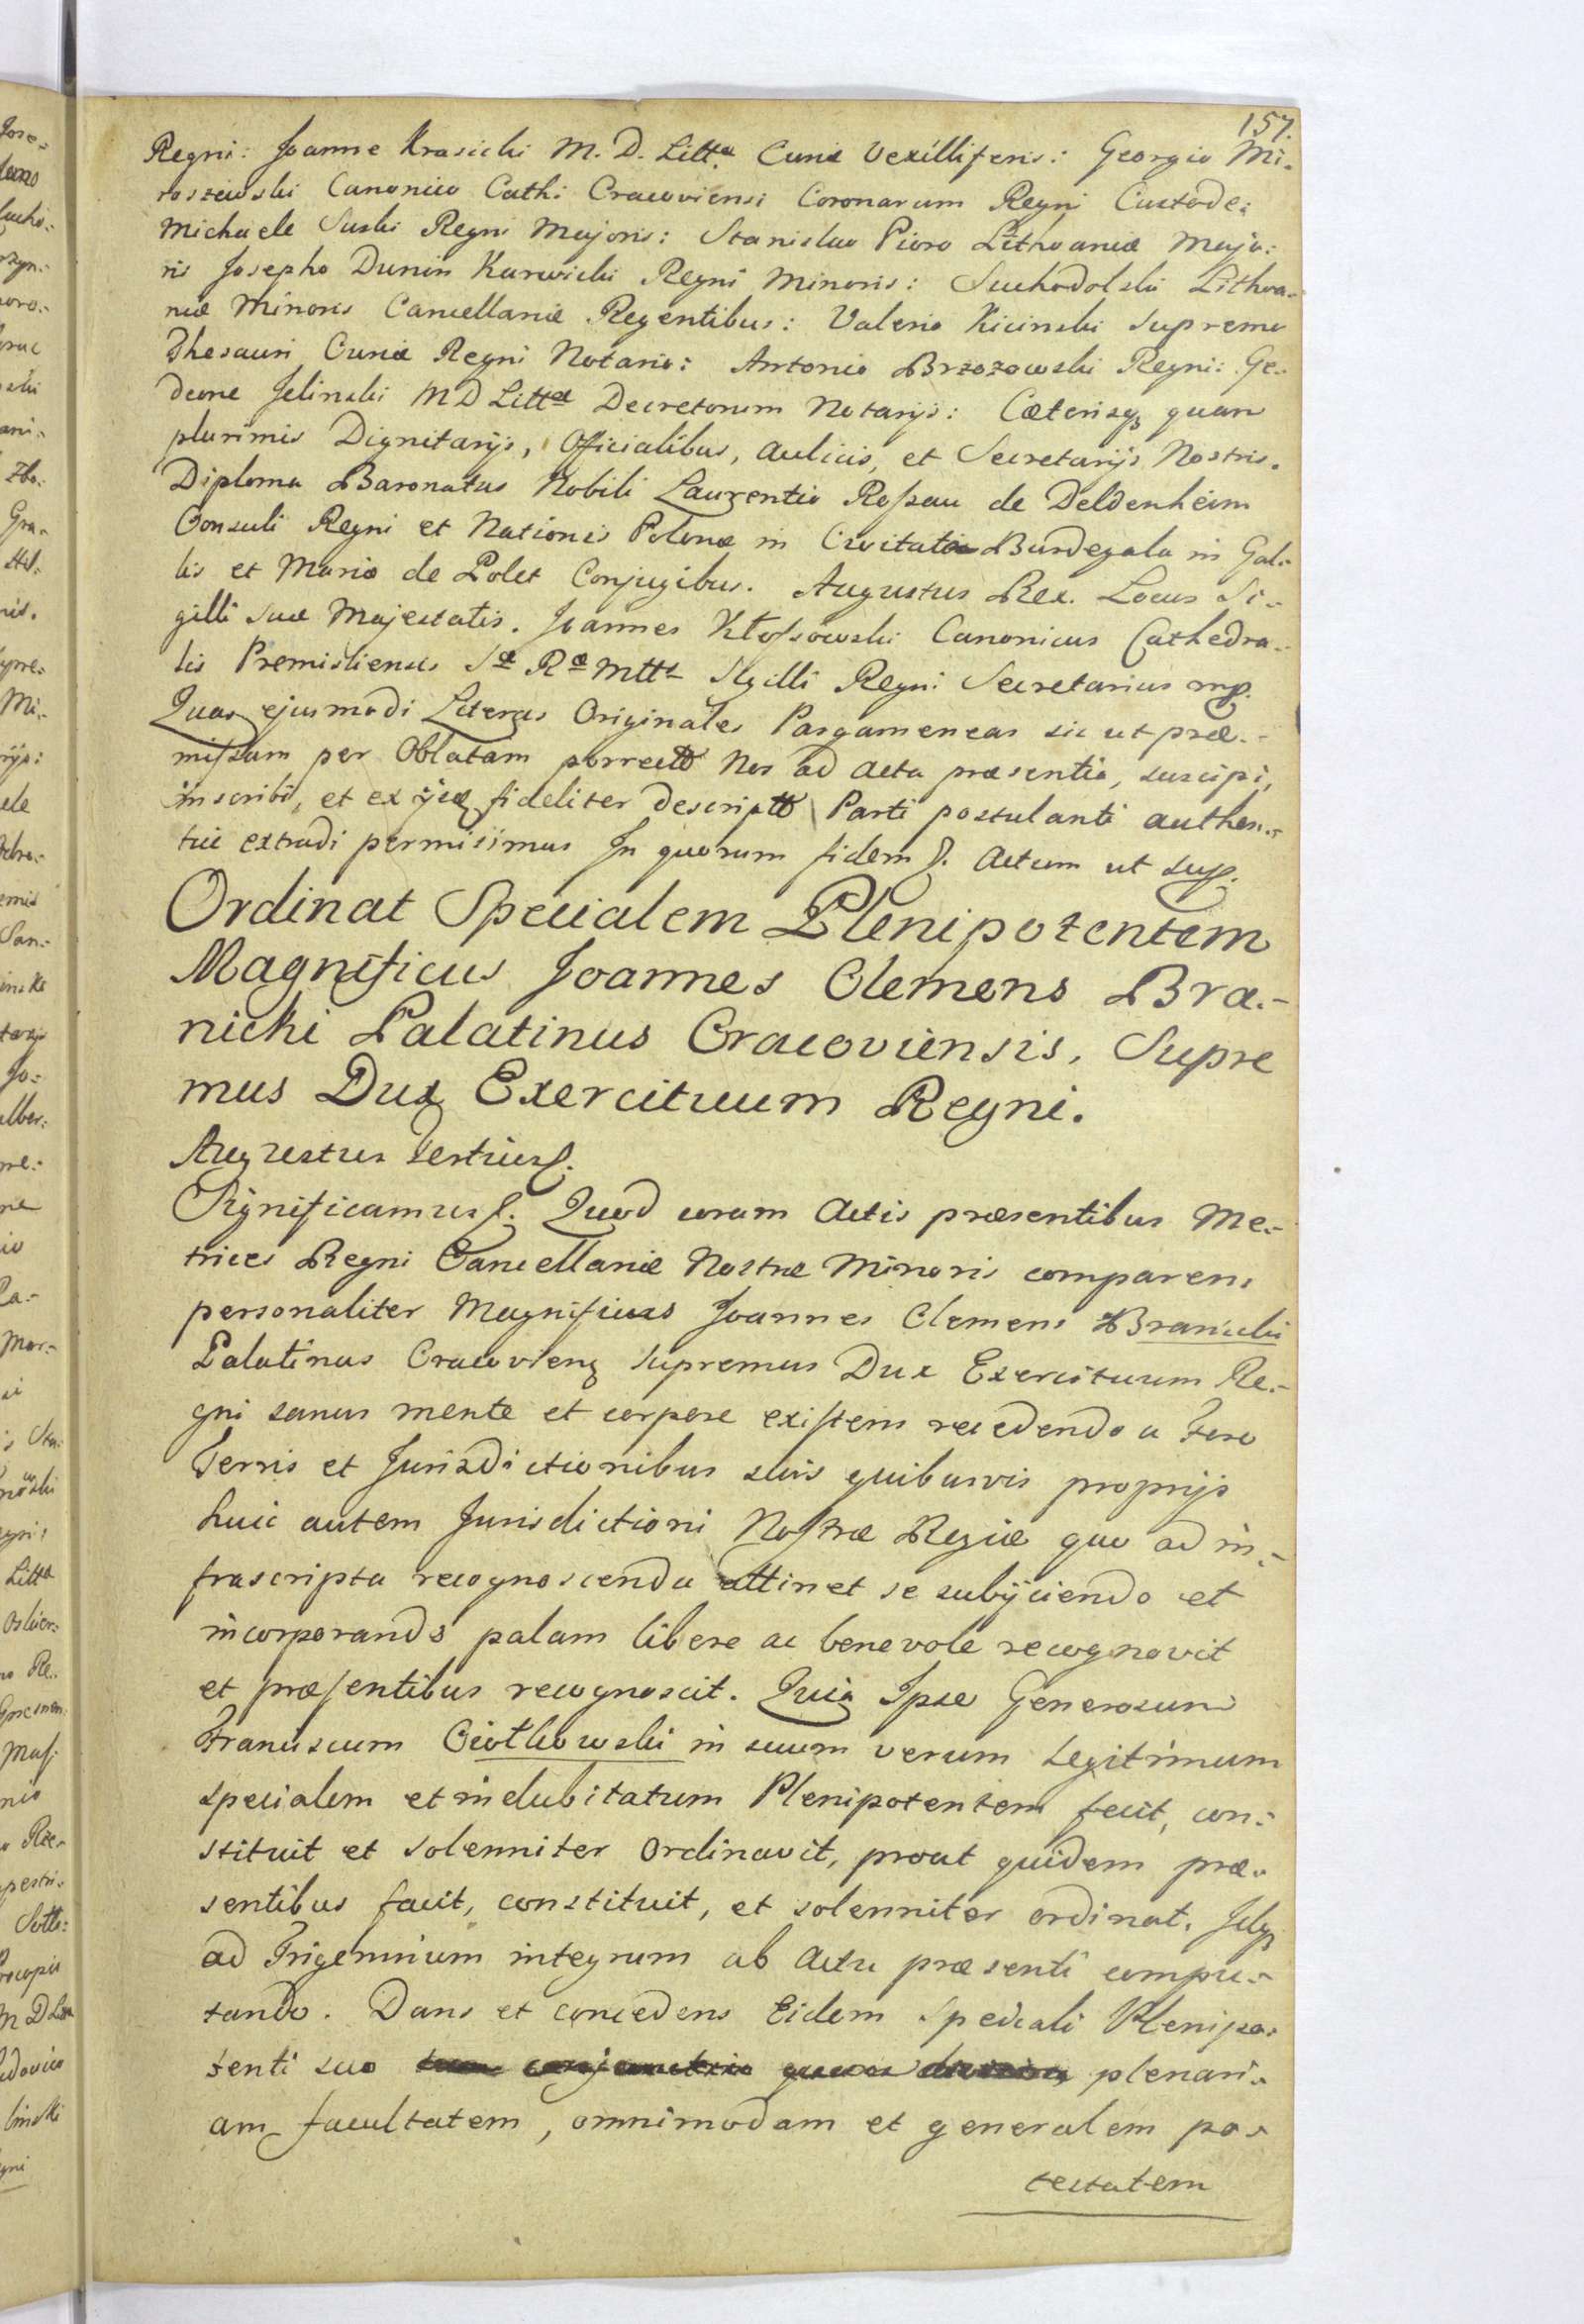 157.
Regni: Joanne Krasicki M. D. Littæ Curiæ Vexillifero: Georgio Mi-
roszewski Canonico Cath: Cracoviensi Coronarum Regni Custode:
Michaele Suski Regni Majoris: Stanislao Pioro Lithvaniæ Majo:
ris Josepho Dunin Karwicki Regni Minoris: Suchodolski Lithva-
niæ Minoris Cancellariæ Regentibus: Valerio Kicinski Supremo
Thesauri Curiæ Regni Notario: Antonio Brzozowski Regni: Ge-
deone Jelinski M D Littæ Decretorum Notarijs: Cæterisq quam
plurimis Dignitarijs, Officialibus, Aulicis, et Secretarijs Nostris.
Diploma Baronatus Nobili Laurentio Roszau de Deldenheim
Consuli Regni et Nationis Polonæ in Civitate Burdegala in Gal-
lis et Maria de Polet Conjugibus. Augustus Rex. Locus Si-
gilli Suæ Majestatis. Joannes Kłossowski Canonicus Cathedra-
lis Premisliensis Sæ Ræ Mtts Sigilli Regni Secretarius mp.
Quas ejusmodi Literas Originales Pargameneas sic ut præ-
missum per Oblatam porrectt Nos ad Acta præsentia, suscipi,
inscribi, et ex ijsq fideliter descriptt Parti postulanti authen-
tice extradi permisimus In quorum fidem &. Actum ut sup.
Ordinat Specialem Plenipotentem
Magnificus Joannes Clemens Bra-
nicki Palatinus Cracoviensis, Supre
mus Dux Exercituum Regni.
Augustus Tertius &.
Significamus &. Quod coram Actis præsentibus Me-
trices Regni Cancellariæ Nostræ Minoris comparens
personaliter Magnificus Joannes Clemens Branicki
Palatinus Cracovienq Supremus Dux Exercituum Re-
gni sanus mente et corpore existens recedendo a Foro
Terris et Jurisdictionibus suis quibusvis proprijs
huic autem Jurisdictioni Nostræ Regiæ quo ad in-
frascripta recognoscenda attinet se subijciendo et
incorporando palam libere ac benevole recognovit
et præsentibus recognoscit. Quia Ipse Generosum
Franciscum Ciotkowski in suum verum legitimum
specialem et indubitatum Plenipotentem fecit, con-
stituit et solenniter Ordinavit, prout quidem præ-
sentibus facit, constituit, et solenniter ordinat. Idq
ad Trigennium integrum ab Actu præsenti compu-
tando. Dans et concedens Eidem Speciali Plenipo-
tenti suo plenari-
am facultatem, omnimodam et generalem po-
testatem